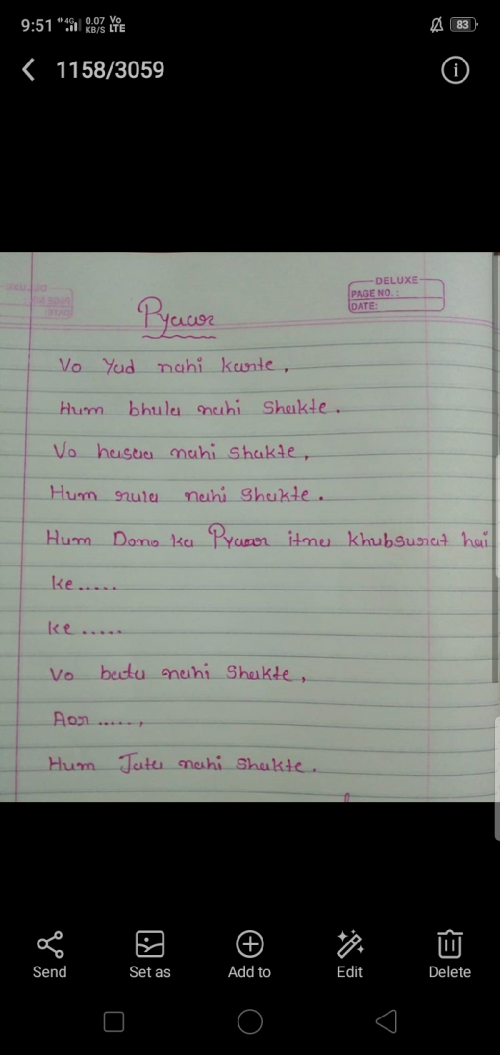 9:51 4G 0.07 KB/S Vo LTE 83
1158/3059
DELUXE
PAGE NO. :
DATE:
Pyaar
Vo Yad nahi karte,
Hum bhula nahi Shakte.
Vo hasaa nahi Shakte,
Hum rula nahi Shakte.
Hum Dono ka Pyaar itna khubsurat hai
ke.....
ke.....
Vo bata nahi Shakte,
Aor.....,
Hum Jata nahi Shakte.
Send Set as Add to Edit Delete